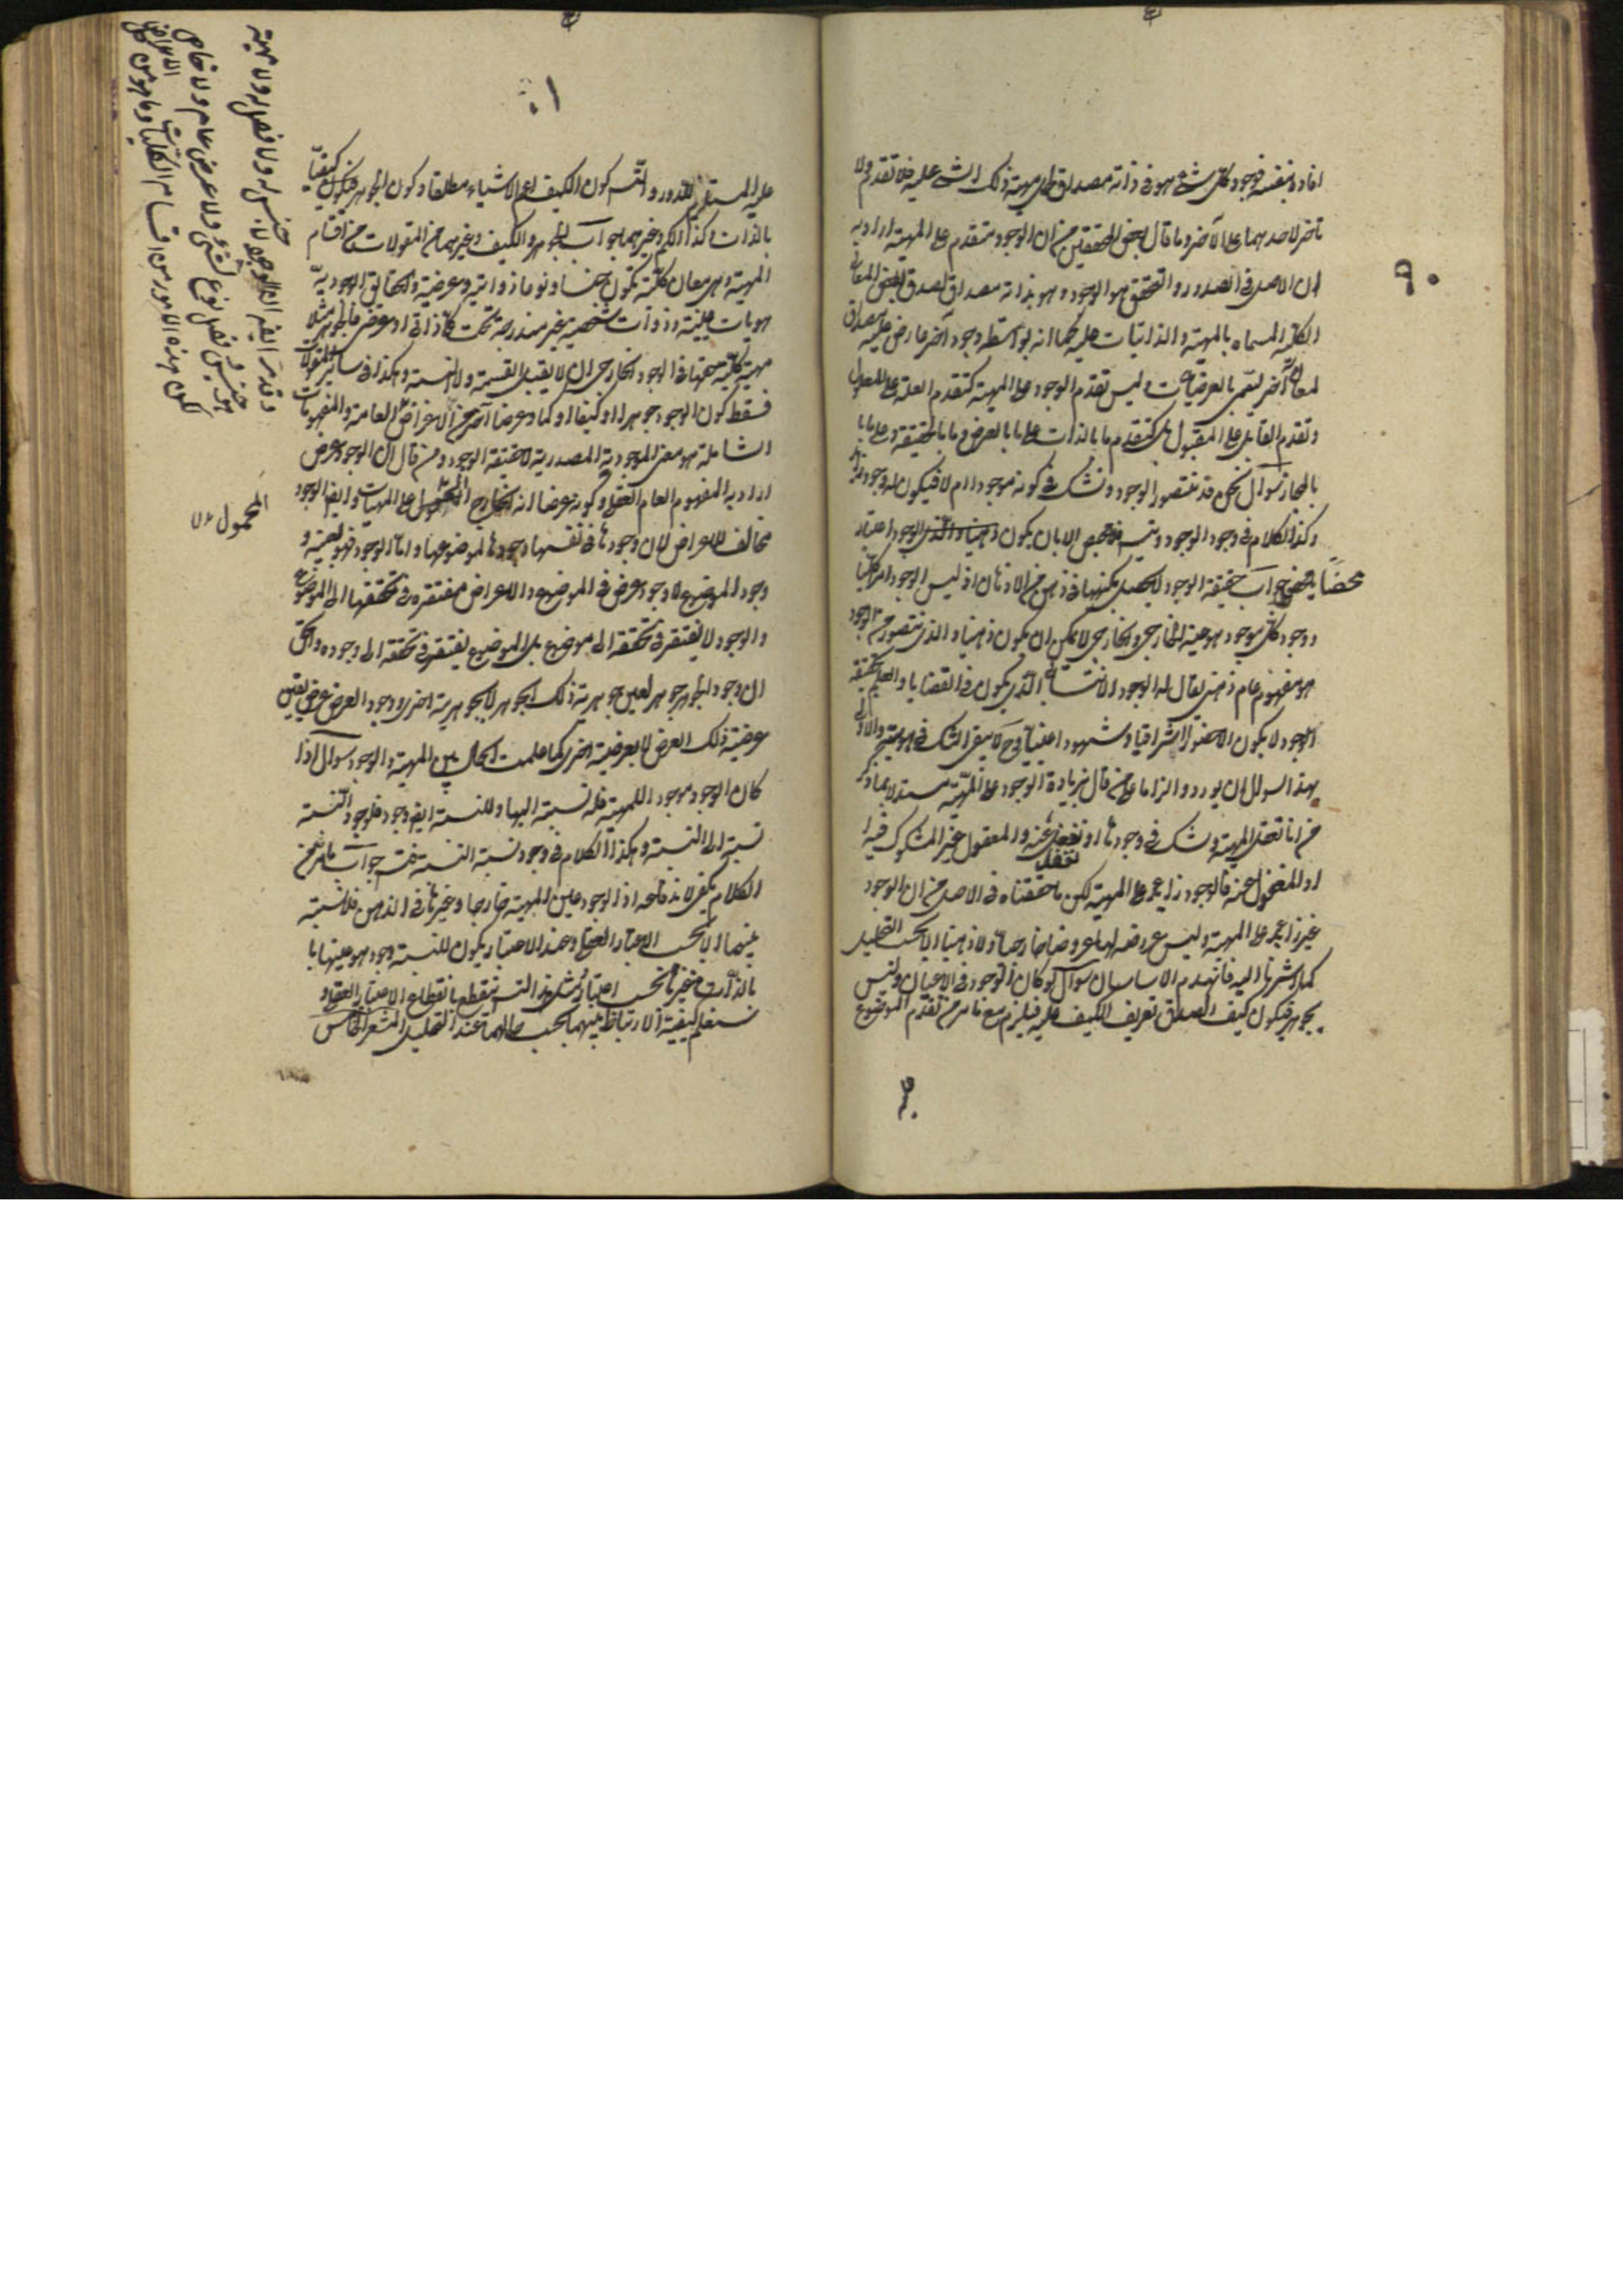 ٩٠
افاده بنفسه فوجود كل شئ هو فى ذاته مصداق لحمل مهية ذلك الشئ عليه فلا تقدم ولا
تاخر لاحدهما على الآخر وما قال بعض المحققين من ان الوجود متقدم على المهية اراد به
ان الاصل فى الصدور والتحقق هو الوجود وهو بذاته مصداق لصدق بعض المعانى
الكلية المسماة بالمهية والذاتيات عليه كما انه بواسطة وجود آخر عارض عليه مصداق
لمعان آخر تسمى بالعرضيات وليس تقدم الوجود على المهية كتقدم العلة على المعلول
وتقدم القابل على المقبول بل كتقدم ما بالذات على ما بالعرض وما بالحقيقة على ما با
بالمجاز سوال نحن قد نتصور الوجود ونشك فى كونه موجودا ام لا فيكون له وجود زايد
وكذا الكلام فى وجود الوجود ويتسلسل فلا محيص الا بان يكون الوجود اعتبار
محضا جواب حقيقة الوجود لا يحصل بكنهها فى ذهن من الاذهان اذ ليس الوجود امرا كليا
ووجود كل موجود هو عينه الخارجى والخارجى لا يمكن ان يكون ذهنيا والذى يتصور من الوجود
هو مفهوم عام ذهنى يقال له الوجود الانتسابى الذى يكون فى القضايا والعلم بحقيقة
الوجود لا يكون الا حضورا اشراقيا وشهودا عينيا وح لا يبقى الشك فى هويته والاولى
بهذا السوال ان يورد الزاما على من قال بزيادة الوجود على المهية مستدلا بما ذكر
من انا نعقل المهية ونشك فى وجودها او نغفل عنه والمعقول غير المشكوك فيه
او المغفول عنه فالوجود زايد على المهية لكن ما حققناه فى الاصل من ان الوجود
غير زايد على المهية وليس عروضه لها عروضا خارجيا ولا ذهنيا الا بحسب التحليل
كما اشرنا اليه فانهدم الاساسان سوال لو كان الوجود فى الاعيان وليس
بجوهر فيكون كيف لصدق تعريف الكيف عليه فيلزم مع ما مر من تقدم الموضوع
١٠
عليه المستلزم للدور والتس كون الكيف اعم الاشياء مطلقا وكون الجوهر كيفا
بالذات وكذا الكم وغيرهما جواب الجوهر والكيف وغيرهما من المقولات من اقسام
المهية وهى معان كلية تكون جنسا ونوعا وذاتية وعرضية والحقايق الوجودية
هويات عينية وذوات شخصية غير مندرجة تحت كلى ذاتى او عرضى فالجوهر مثلا
مهية كلية حقها فى الوجود الخارجى ان لا يقبل القسمة ولا النسبة وهكذا فى ساير المقولات
فسقط كون الوجود جوهرا او كيفا او كما وعرضا آخر من الاعراض العامة والمفهومات
الشاملة هو معنى الموجودية المصدرية لا حقيقة الوجود ومن قال ان الوجود عرض
اراد به المفهوم العام العقلى وكونه عرضا انه الخارج المحمول على المهيات وايضا الوجود
مخالف للاعراض لان وجودها فى نفسها وجودها لموضوعها واما الوجود فهو بعينه
وجود الموضوع لا وجود عرض فى الموضوع والاعراض مفتقرة فى تحققها الى الموضوع
والوجود لا يفتقر فى تحققه الى موضوع بل الموضوع يفتقر فى تحققه الى وجوده والحق
ان وجود الجوهر جوهر بعين جوهرية ذلك الجوهر لا بجوهرية اخرى ووجود العرض عرض بعين
عرضية ذلك العرض لا بعرضية اخرى كما علمت الحال بين المهية والوجود سوال اذا
كان الوجود موجودا للمهية فله نسبة اليها وللنسبة ايضا وجود فلوجود النسبة
نسبة الى النسبة وهكذا الكلام فى وجود نسبة النسبة فتس جواب ما مر من
الكلام يكفى لاندفاعه اذ الوجود عين المهية خارجا وغيرها فى الذهن فلا نسبة
بينهما الا بحسب الاعتبار العقلى وعند الاعتبار يكون للنسبة وجود هو عينها با
بالذات وغيرها بحسب الاعتبار ومثل هذا التس ينقطع بانقطاع الاعتبار العقلى و
ستعلم كيفية الارتباط بينهما بحسب حالهما عند التحليل المشعر الخامس
المحمول
وقد مر ايضا ان الوجود لا جنس له ولا فصل له ولا مهية
هو جنس وفصل ونوع لشئ ولا عرض عام ولا خاص
لكون هذه الامور من اقسام الكليات وما هو من
الاعراض